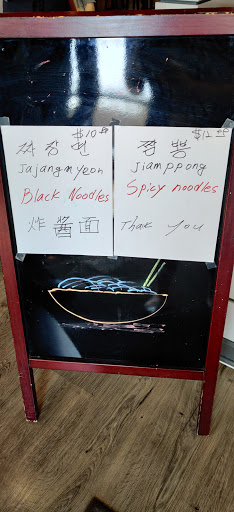 $10.00
짜장면
Jajangmyeon
Black Noodles
炸醬面
$12.00
짬뽕
Jjamppong
Spicy noodles
Thak you